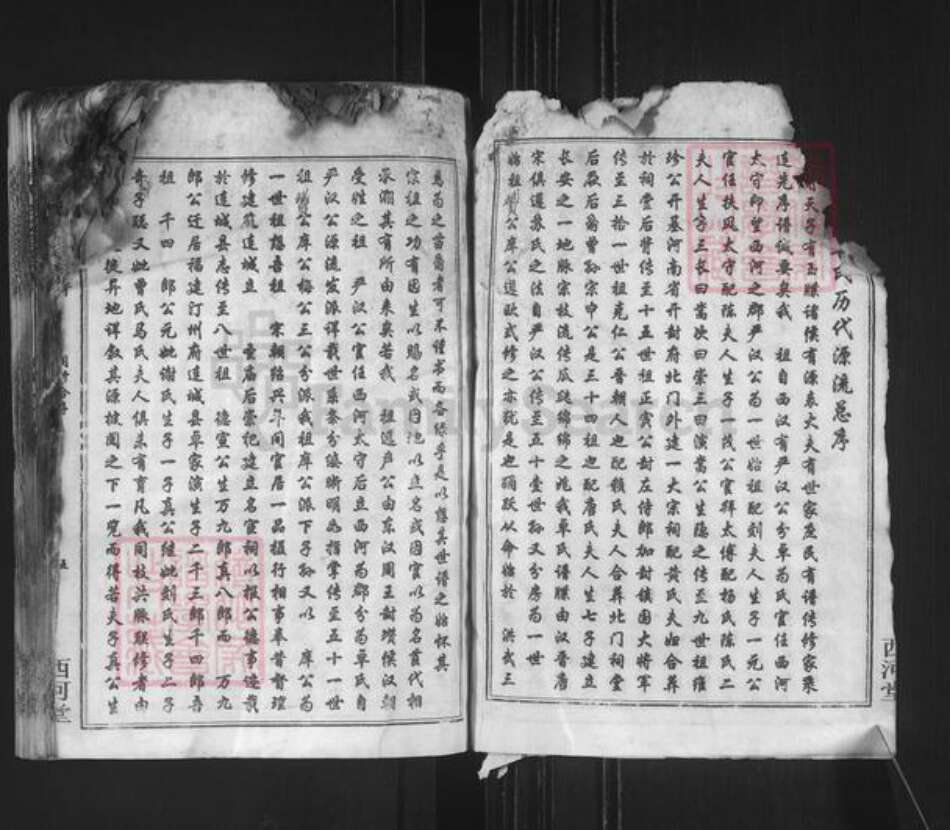 氏历代源流总序
天子有玉牒诸侯有源表大夫有世家庶民有谱传修家乘
速先序得诚要矣我 祖自西汉有严汉公分卓为氏官任西河
太守即望西河之郡严汉公为一世始祖配刘夫人生子一元公
官任扶风太守配陈夫人生子茂公官拜太傅配杨氏陈氏二
夫人生子三长曰嵩次曰崇三曰演嵩公生隐之传至九世祖雍
珍公开基河南省开封府北门外建一大宗祠配黄氏夫妇合葬
于祠堂后背传至十五世祖正宾公封左侍郎加封镇国大将军
传至三拾一世祖克仁公晋朝人也配赖氏夫人合葬北门祠堂
后厥后裔曹孙宗申公是三十四祖也配唐氏夫人生七子建立
长安之一地脉宗枝流传瓜瓞绵绵之兆我卓氏谱牒由汉晋唐
宋俱遵苏氏之法自严汉公传至五十壹世孙又分房为一世
始祖 公库公遵欧式修之亦犹是也踊跃以命始于 洪武三
为之苗裔者可不谨书而各录乎是以想其世谱之始怀其
宗祖之功有因生以赐名或因地以立名或因官以为名昔代相
承溯其有所由来矣若我 祖选卢公由东汉周王封瓒候汉朝
受姓之祖 严汉公官任西河太守后立西河为郡分为卓氏自
严汉公源流发派详载世系条分缕晰明如指掌传至五十一世
祖 公库公梅公三公分派我祖库公派下子孙又以 库公为
一世祖想吾祖 宋朝绍兴年间官居一品摄行相事奉旨督理
修建筑连城立 圣庙后崇祀建立名宦祠以报公德事迹载
于连城县志传至八世祖 德宣公生万九郎真八郎而 万九
郎公迁居福建汀州府连城县卓家演生子二千三郎千四郎吾
祖 千四 郎公元妣谢氏生子一子真公继妣刘氏生子二子
奇子聪又妣曹氏马氏夫人俱未有育凡我同枝共脉联修者由
徙异地详叙其源披阅之下一览而得若夫子真公生
五
西河堂
西河堂
FamilySearch